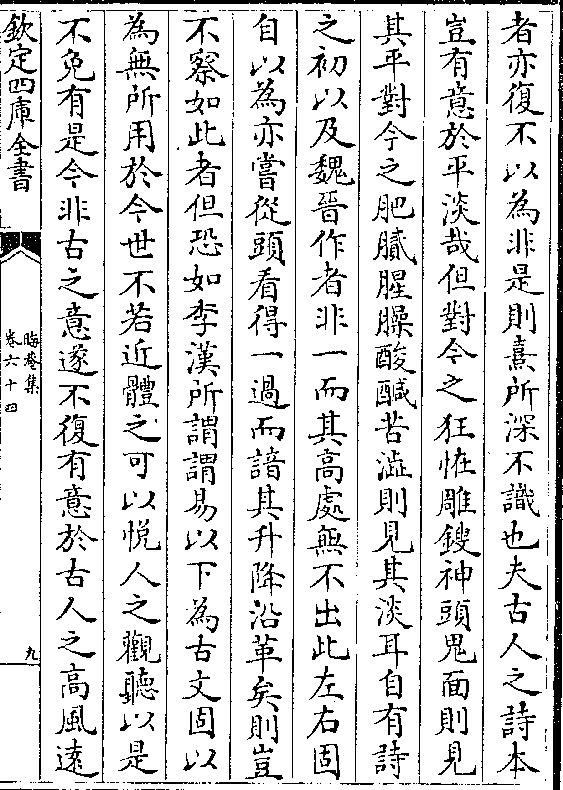 者亦復不以為非是則熹所深不識也夫古人之詩本
豈有意於平淡哉但對今之狂怪雕鎪神頭鬼面則見
其平對今之肥膩腥臊酸鹹苦澁則見其淡耳自有詩
之初以及魏晉作者非一而其高處無不出此左右固
自以為亦嘗從頭看得一過而諳其升降沿革矣則豈
不察如此者但恐如李漢所謂謂易以下為古文固以
為無所用於今世不若近體之可以悅人之觀聽以是
不免有是今非古之意遂不復有意於古人之高風遠
欽定四庫全書
晦菴集
卷六十四
九